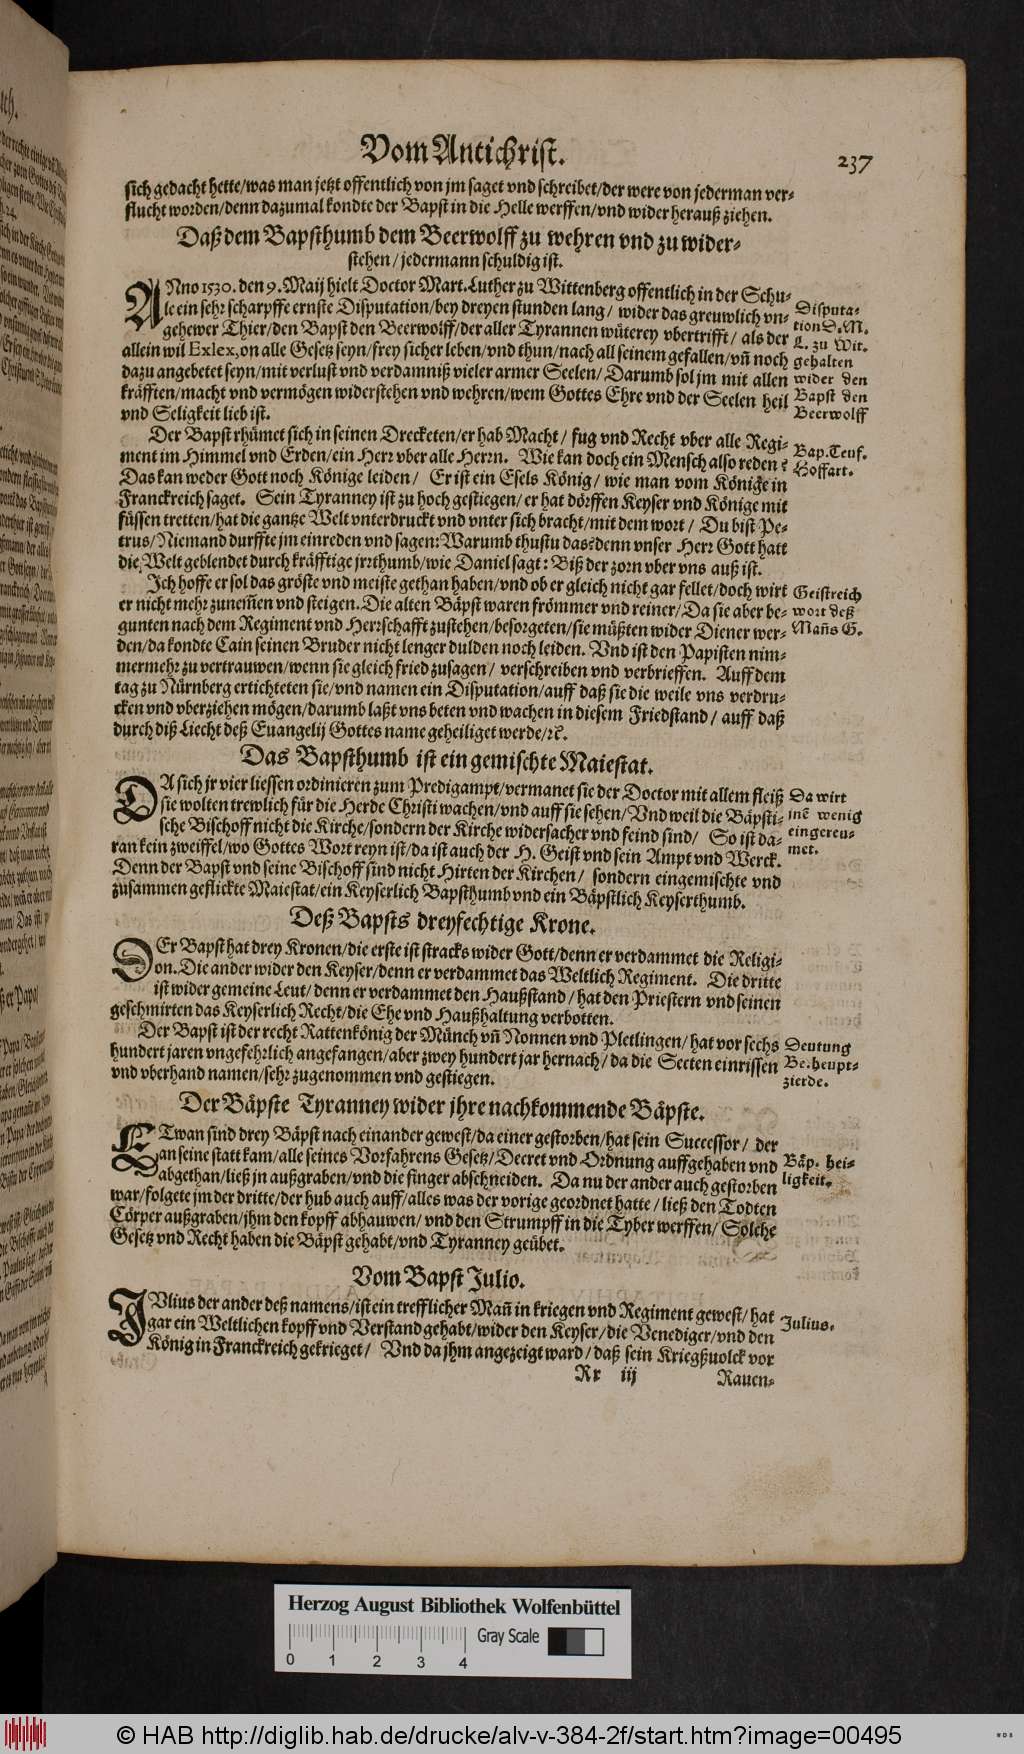 Vom Antichrist.
237
sich gedacht hette/was man jetzt offentlich von jm saget vnd schreibet/der were von jederman ver-
flucht worden/denn dazumal kondte der Bapst in die Helle werffen/vnd wider herauß ziehen.
Daß dem Bapsthumb dem Beerwolff zu wehren vnd zu wider-
stehen/jedermann schuldig ist.
ANno 1530. den 9. Maij hielt Doctor Mart. Luther zu Wittenberg offentlich in der Schu-
le ein sehr scharpffe ernste Disputation/bey dreyen stunden lang/ wider das greuwlich vn-
gehewer Thier/den Bapst den Beerwolff/der aller Tyrannen wüterey vbertrifft/ als der
allein wil Exlex, on alle Gesetz seyn/frey sicher leben/vnd thun/nach all seinem gefallen/vñ noch
dazu angebetet seyn/mit verlust vnd verdamniß vieler armer Seelen/ Darumb sol jm mit allen
kräfften/macht vnd vermögen widerstehen vnd wehren/wem Gottes Ehre vnd der Seelen heil
vnd Seligkeit lieb ist.
Disputa-
tion D. M.
L. zu Wit.
gehalten
wider den
Bapst den
Beerwolff
Der Bapst rhümet sich in seinen Drecketen/er hab Macht/ fug vnd Recht vber alle Regi-
ment im Himmel vnd Erden/ein Herr vber alle Herrn. Wie kan doch ein Mensch also reden?
Das kan weder Gott noch Könige leiden/ Er ist ein Esels König/ wie man vom Könige in
Franckreich saget. Sein Tyranney ist zu hoch gestiegen/ er hat dörffen Keyser vnd Könige mit
füssen tretten/hat die gantze Welt vnterdruckt vnd vnter sich bracht/mit dem wort/ Du bist Pe-
trus/Niemand durffte jm einreden vnd sagen: Warumb thustu das? denn vnser Herr Gott hatt
die Welt geblendet durch kräfftige jrrthumb/wie Daniel sagt: Biß der zorn vber vns auß ist.
Bap. Teuf.
Hoffart.
Ich hoffe er sol das gröste vnd meiste gethan haben/vnd ob er gleich nicht gar fellet/doch wirt
er nicht mehr zunem̃en vnd steigen. Die alten Bäpst waren frömmer vnd reiner/ Da sie aber be-
gunten nach dem Regiment vnd Herrschafft zustehen/besorgeten/sie müßten wider Diener wer-
den/da kondte Cain seinen Bruder nicht lenger dulden noch leiden. Vnd ist den Papisten nim-
mermehr zu vertrauwen/wenn sie gleich fried zusagen/ verschreiben vnd verbrieffen. Auff dem
tag zu Nürnberg ertichteten sie/vnd namen ein Disputation/auff daß sie die weile vns verdru-
cken vnd vberziehen mögen/darumb laßt vns beten vnd wachen in diesem Friedstand/ auff daß
durch diß Liecht deß Euangelij Gottes name geheiliget werde/ꝛc̃.
Geistreich
wort deß
Mañs G.
Das Bapsthumb ist ein gemischte Maiestat.
DA sich jr vier liessen ordinieren zum Predigampt/vermanet sie der Doctor mit allem fleiß
sie wolten trewlich für die Herde Christi wachen/vnd auff sie sehen/Vnd weil die Bäpsti-
sche Bischoff nicht die Kirche/sondern der Kirche widersacher vnd feind sind/ So ist da-
ran kein zweiffel/wo Gottes Wort reyn ist/da ist auch der H. Geist vnd sein Ampt vnd Werck.
Denn der Bapst vnd seine Bischoff sind nicht Hirten der Kirchen/ sondern eingemischte vnd
zusammen geflickte Maiestat/ein Keyserlich Bapsthumb vnd ein Bäpstlich Keyserthumb.
Da wirt
jnẽ wenig
eingereu-
met.
Deß Bapsts dreyfechtige Krone.
DEr Bapst hat drey Kronen/die erste ist stracks wider Gott/denn er verdammet die Religi-
on. Die ander wider den Keyser/denn er verdammet das Weltlich Regiment. Die dritte
ist wider gemeine Leut/ denn er verdammet den Haußstand/hat den Priestern vnd seinen
geschmirten das Keyserlich Recht/die Ehe vnd Haußhaltung verbotten.
Der Bapst ist der recht Rattenkönig der Münch vñ Nonnen vnd Pletlingen/ hat vor sechs
hundert jaren vngefehrlich angefangen/aber zwey hundert jar hernach/ da die Secten einrissen
vnd vberhand namen/sehr zugenommen vnd gestiegen.
Deutung
Be. heupt-
zierde.
Der Bäpste Tyranney wider jhre nachkommende Bäpste.
ETwan sind drey Bäpst nach einander gewest/da einer gestorben/hat sein Successor/ der
an seine statt kam/alle seines Vorfahrens Gesetz/Decret vnd Ordnung auffgehaben vnd
abgethan/ließ jn außgraben/vnd die finger abschneiden. Da nu der ander auch gestorben
war/folgete jm der dritte/der hub auch auff/alles was der vorige geordnet hatte/ließ den Todten
Cörper außgraben/jhm den kopff abhauwen/ vnd den Strumpff in die Tyber werffen/ Solche
Gesetz vnd Recht haben die Bäpst gehabt/vnd Tyranney geübet.
Bäp. hei-
ligkeit.
Vom Bapst Julio.
IVlius der ander deß namens/ist ein trefflicher Mañ in kriegen vnd Regiment gewest/hat
gar ein Weltlichen kopff vnd Verstand gehabt/wider den Keyser/die Venediger/vnd den
König in Franckreich gekrieget/ Vnd da jhm angezeigt ward/ daß sein Kriegßuolck vor
Julius.
Rr iij
Rauen-
Herzog August Bibliothek Wolfenbüttel
Gray Scale
0 1 2 3 4
© HAB http://diglib.hab.de/drucke/alv-v-384-2f/start.htm?image=00495